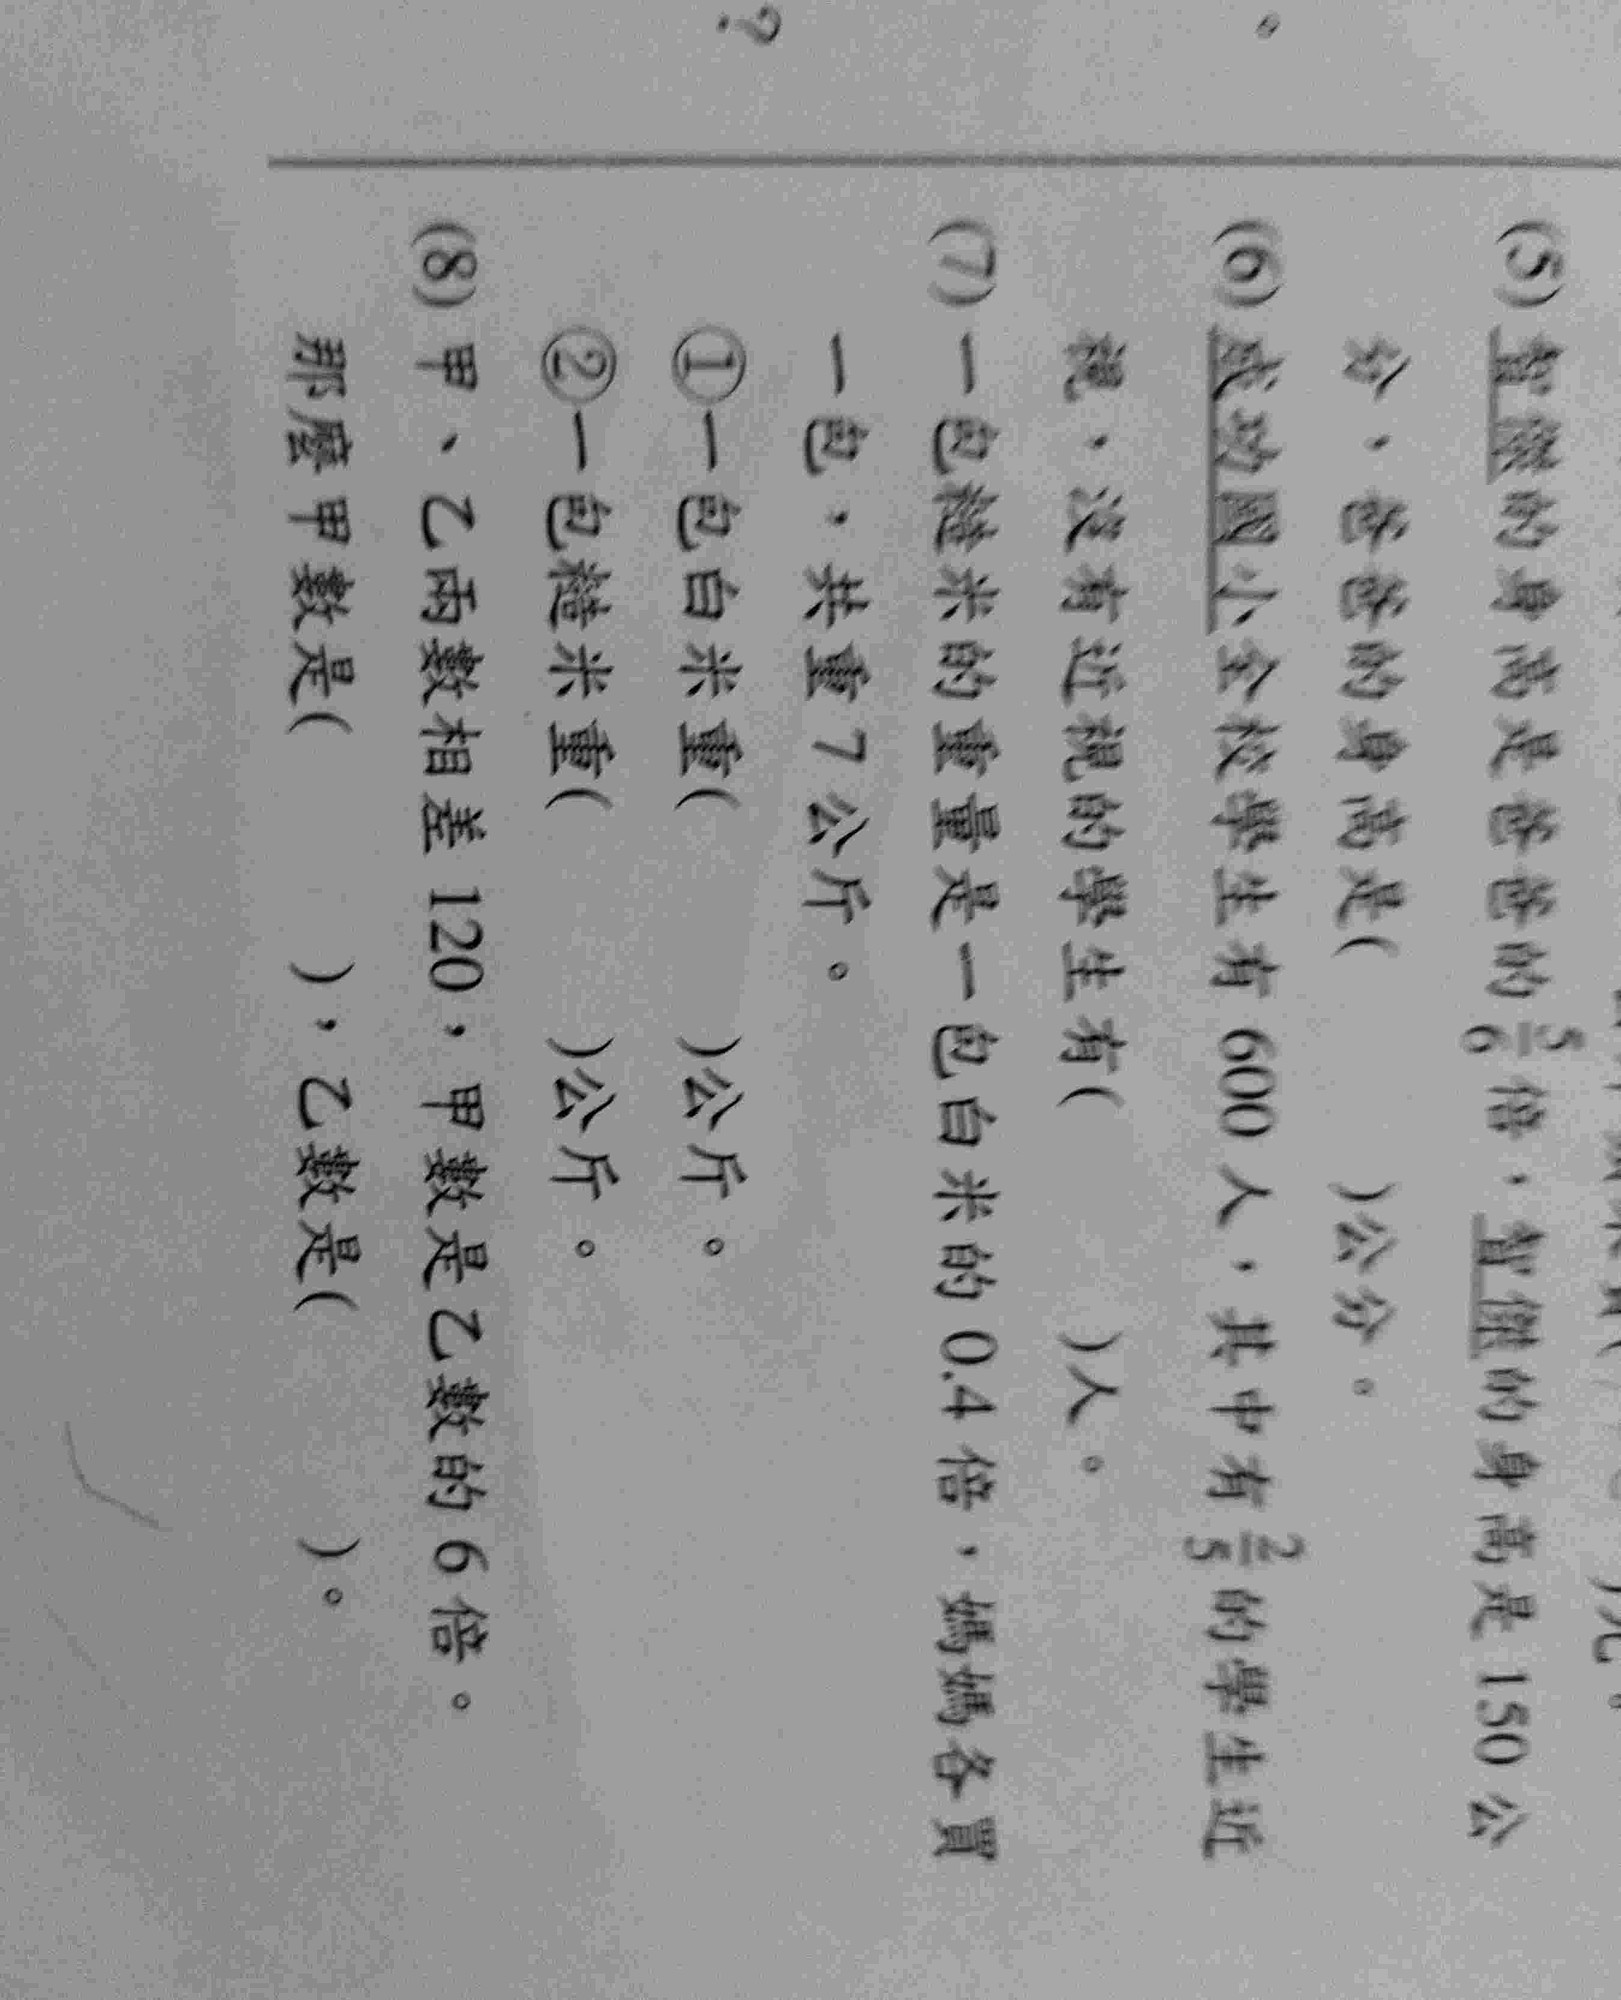 ?
(5)智傑的身高是爸爸的 5/6 倍，智傑的身高是 150 公
分，爸爸的身高是(　　)公分。
(6)成功國小全校學生有 600 人，其中有 2/5 的學生近
視，沒有近視的學生有(　　)人。
(7)一包糙米的重量是一包白米的 0.4 倍，媽媽各買
一包，共重 7 公斤。
①一包白米重(　　)公斤。
②一包糙米重(　　)公斤。
(8)甲、乙兩數相差 120，甲數是乙數的 6 倍。
那麼甲數是(　　)，乙數是(　　)。